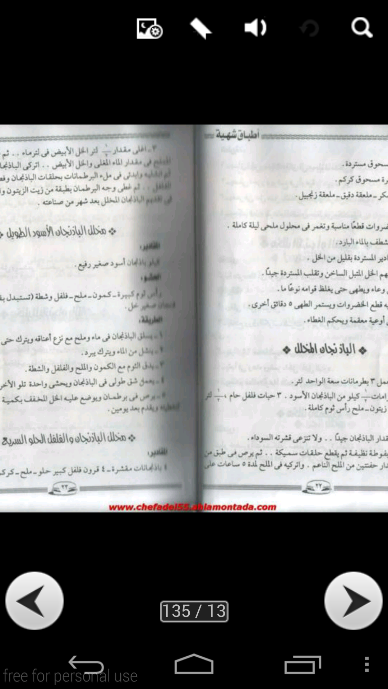 أطباق شهية
سحوق مستردة .
ـرة مسحوق كركم .
ـكر – ملعقة دقيق – ملعقة زنجبيل .
ـخضروات قطعًا مناسبة وتغمر في محلول ملحي ليلة كاملة .
ـشطف بالماء البارد .
ـادير المستردة بقليل من الخل .
ـهم الخل المتبل الساخن وتقلب المستردة جيدًا .
ـوعاء ويطهى حتى يغلظ قوامه نوعًا ما .
ـه قطع الخضروات ويستمر الطهى ٥ دقائق أخرى .
ـي أوعية معقمة ويحكم الغطاء .
الباذنجان المخلل
٣ برطمانات سعة الواحد لتر .
كيلو من الباذنجان الأسود . ٣ حبات فلفل حار
زيتون – ملح رأس ثوم كاملة .
ـقدار الباذنجان جيدًا .. ولا تنزعى قشرته السوداء .
بفوطة نظيفة ثم يقطع حلقات سميكة .. ثم يرص فى طبق من
ـدار حفنتين من الملح الناعم . واتركيه فى الملح لمدة ٥ ساعات على
٢٢
٣ – اغلى مقدار لتر الخل الأبيض فى لتر ماء .. ثم
فى مقدار الماء المغلى والخل الأبيض .. اتركى الباذنجان
وابدئى فى ملء البرطمانات بحلقات الباذنجان
.. ثم غطى وجه البرطمان بطبقة من زيت الزيتون
الباذنجان المخلل بعد شهر من صناعته .
مخلل الباذنجان الأسود الطويل
المقادير:
كيلو باذنجان أسود صغير رفيع .
الحشو:
رأس ثوم كبيرة – كمون – ملح – فلفل وشطة
الطريقة:
١ – يسلق الباذنجان فى ماء وملح مع نزع أعناقه ويترك حتى
٢ – ينشل من الماء ويترك يبرد .
٣ – يدق الثوم مع الكمون والملح والفلفل والشطة .
٤ – يعمل شق طولى فى الباذنجان ويحشى واحدة تلو الأخرى
٥ – يرص فى برطمان ويوضع عليه الخل المخفف بكمية
ويقدم بعد يومين .
مخلل الباذنجان والفلفل الحلو السريع
المقادير:
٤ باذنجانات مقشرة – ٤ قرون فلفل كبير حلو – ملح –
٢٣
www.chefadel55.ahlamontada.com
135 / 13
free for personal use